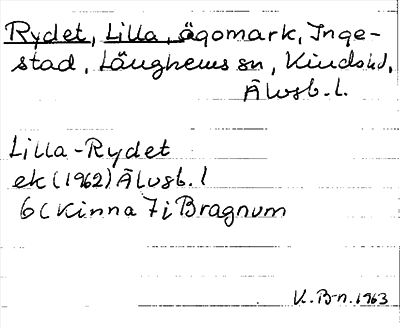 Rydet, Lilla, ägomark, Inge-
stad, Länghems sn, Kinds hd,
Älvsb. l.
Lilla-Rydet
ek (1962) Älvsb. l
6c Kinna 7 i Bragnum
V. B-n. 1963